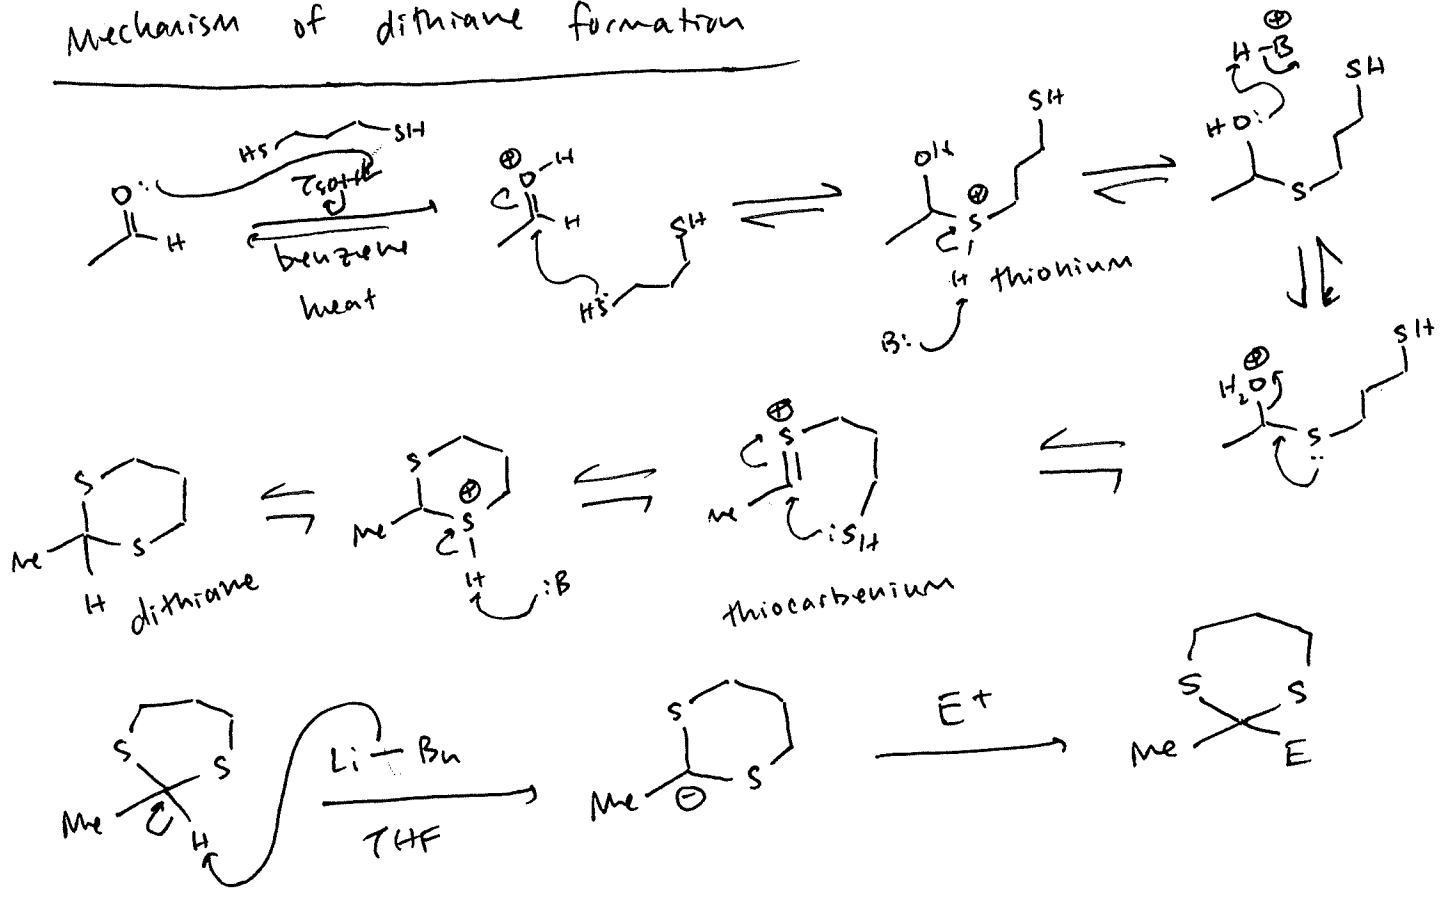 Mechanism of dithiane formation
HS SH
TsOH
O: H
benzene
heat
⊕
O H
H
SH
HS:
OH
SH
⊕
S
H
thionium
B:
⊕
H-B
HO:
SH
S
⊕
H2O
SH
S
:
⊕
S
Me
:SH
thiocarbenium
S
⊕
Me S
H
:B
S
Me S
H
dithiane
S S
Me H
Li-Bu
THF
S
Me ⊖ S
E+
S S
Me E